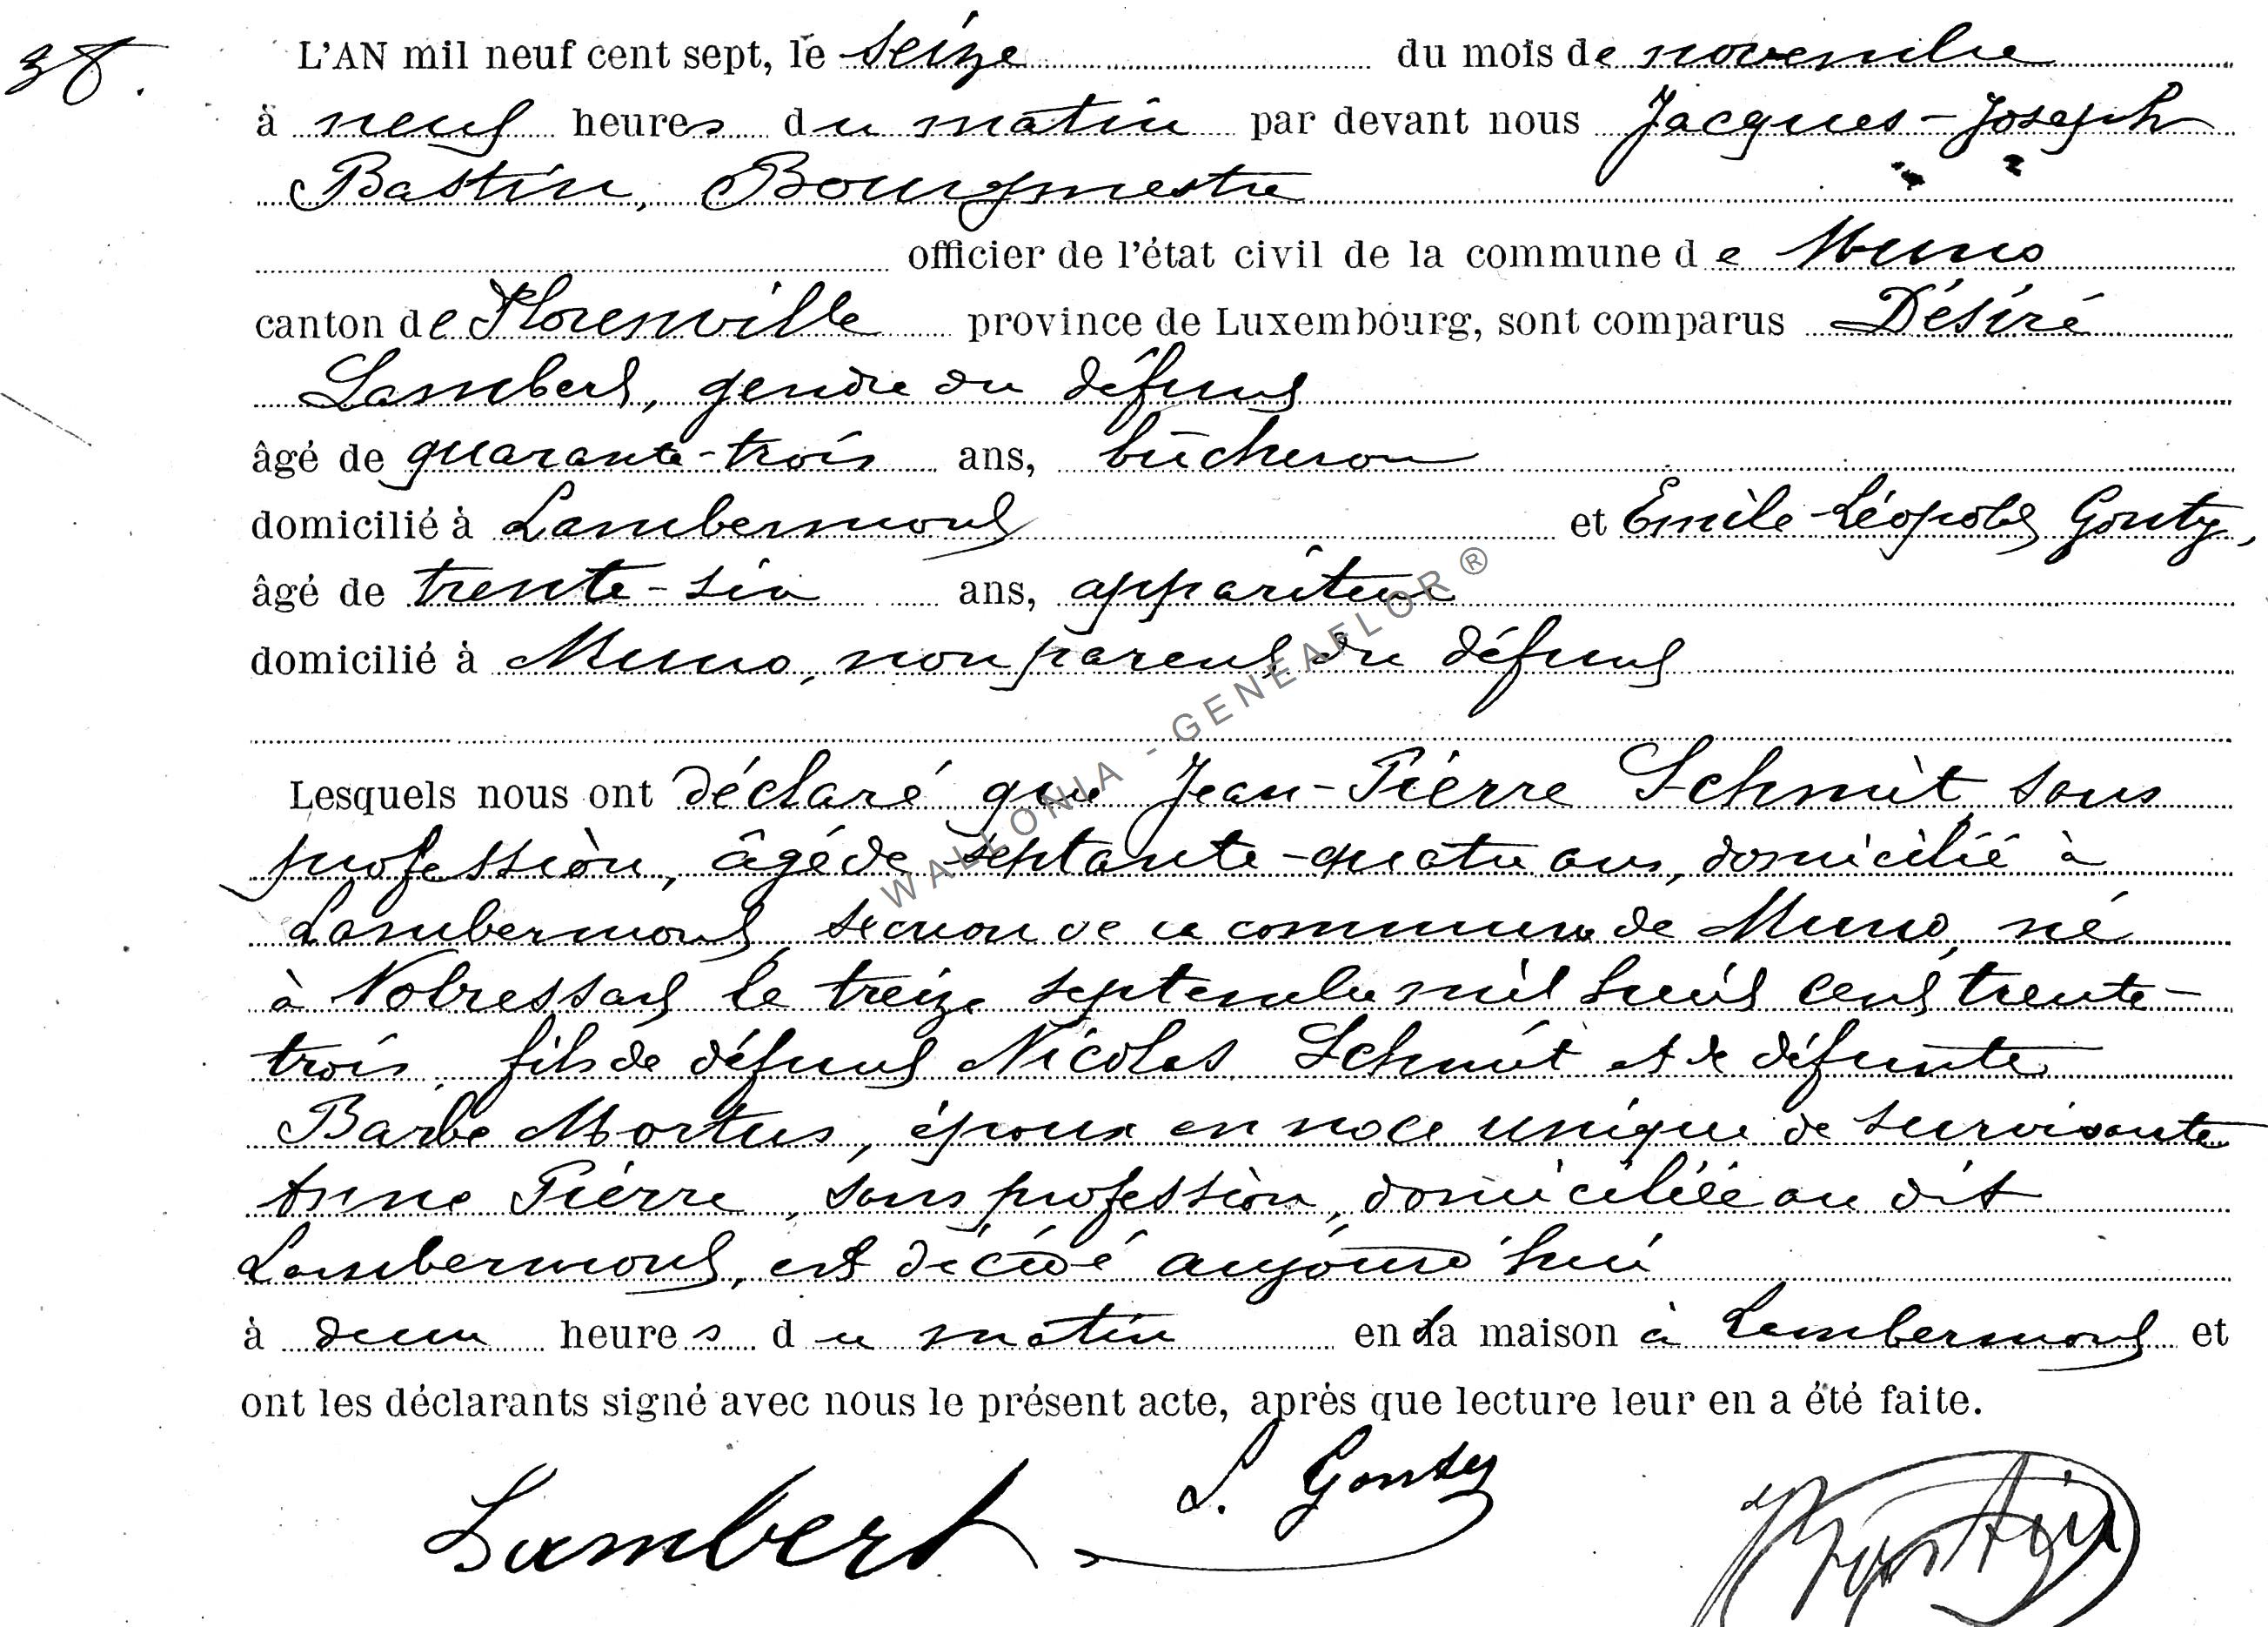 38.
L'AN mil neuf cent sept, le seize du mois de novembre
à neuf heures du matin par devant nous Jacques-Joseph
Bastin, Bourgmestre
officier de l'état civil de la commune de Muno
canton de Florenville province de Luxembourg, sont comparus Désiré
Lambert, gendre du défunt
âgé de quarante-trois ans, bûcheron
domicilié à Lambermont et Emile-Léopold Gouty,
âgé de trente-six ans, appariteur
domicilié à Muno, non parent du défunt
Lesquels nous ont déclaré que Jean-Pierre Schmit, sans
profession, âgé de septante-quatre ans, domicilié à
Lambermont, section de la commune de Muno, né
à Nobressart le treize septembre mil huit cent trente-
trois, fils de défunt Nicolas Schmit et de défunte
Barbe Mortus, époux en noce unique de survivante
Anne Pierre, sans profession, domiciliée au dit
Lambermont, est décédé aujourd'hui
à deux heures du matin en sa maison à Lambermont et
ont les déclarants signé avec nous le présent acte, après que lecture leur en a été faite.
Lambert L. Gouty JBastin
WALLONIA - GENEAFLOR ®